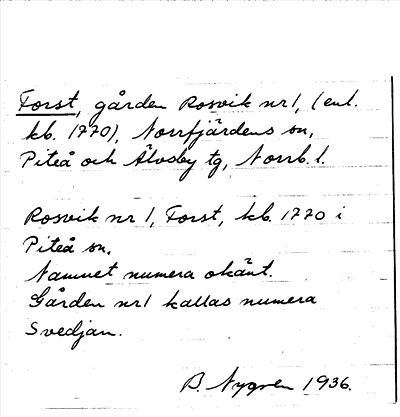 Forst, gården Rosvik nr 1, (enl.
kb. 1770), Norrfjärdens sn,
Piteå och Älvsby tg, Norrb. l.
Rosvik nr 1, Forst, kb. 1770 i
Piteå sn.
Namnet numera okänt.
Gården nr 1 kallas numera
Svedjan.
B. Nygren 1936.